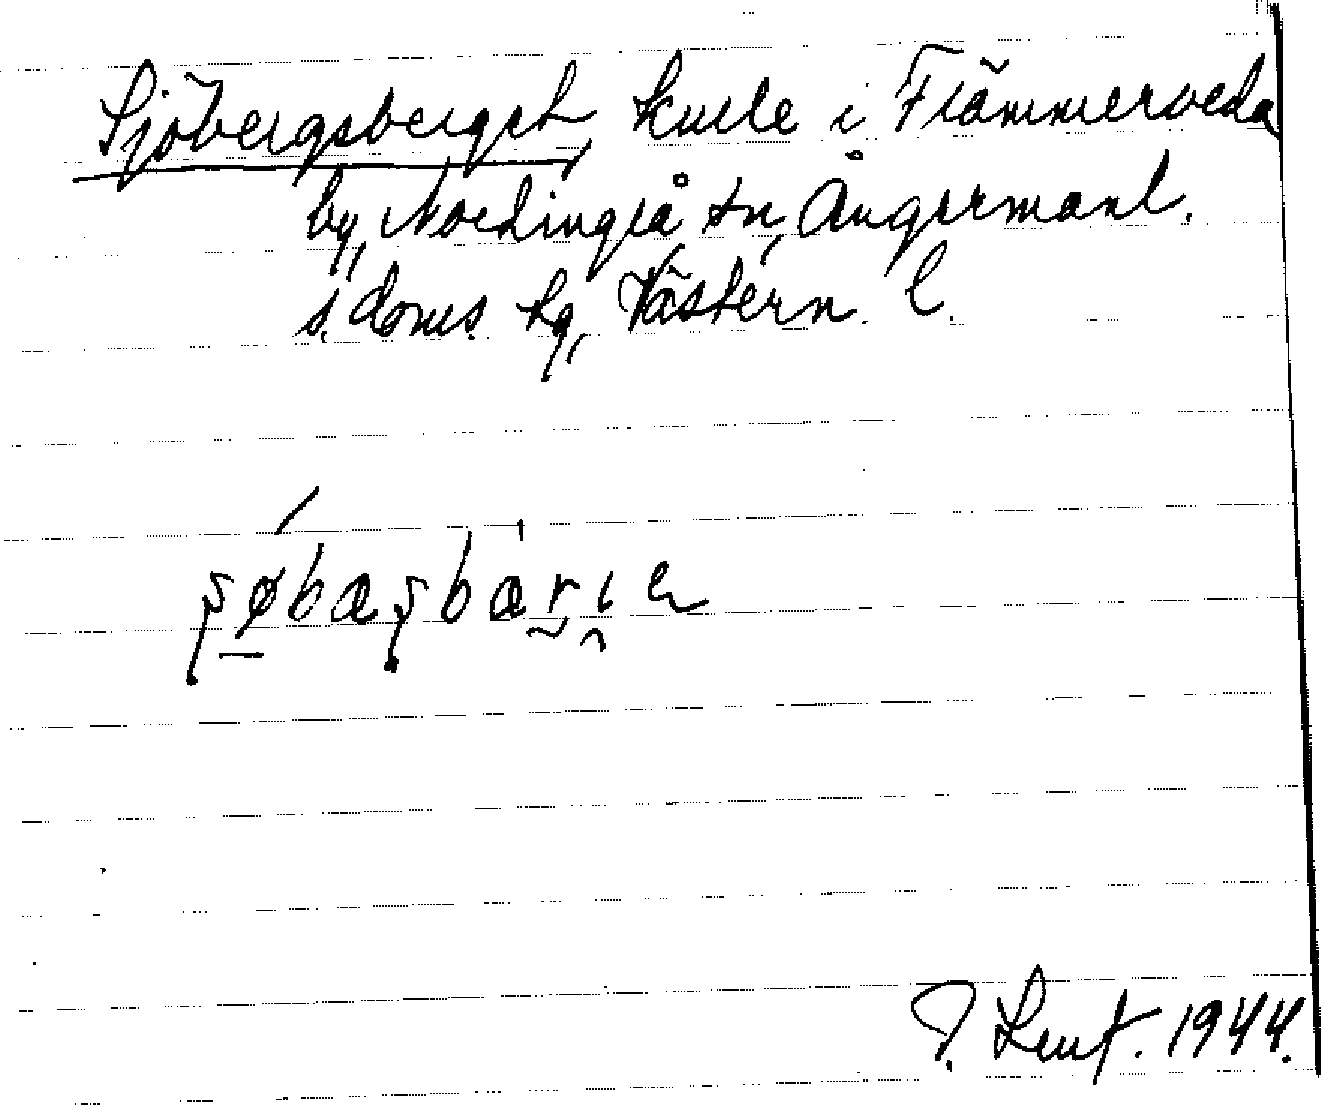 Sjöbergsberget, kulle i Flämmerveda
by, Nordingrå sn, Ångermanl.
s. doms. hg, Västern. l.
J. Lenf. 1944.